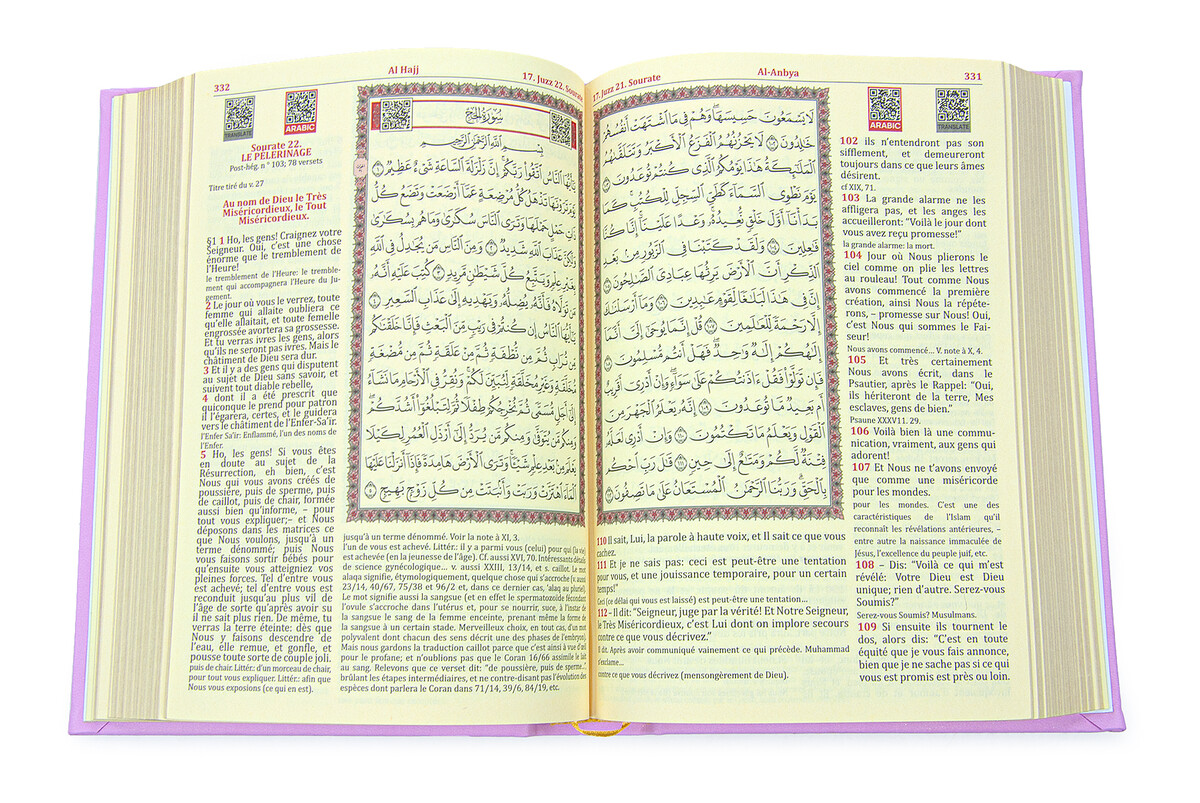 331
Al-Anbya
17. Juzz 21. Sourate
ARABIC
TRANSLATE
لَا يَسْمَعُونَ حَسِيسَهَا ۖ وَهُمْ فِى مَا ٱشْتَهَتْ أَنفُسُهُمْ
خَٰلِدُونَ ١٠٢ لَا يَحْزُنُهُمُ ٱلْفَزَعُ ٱلْأَكْبَرُ وَتَتَلَقَّىٰهُمُ
ٱلْمَلَٰٓئِكَةُ هَٰذَا يَوْمُكُمُ ٱلَّذِى كُنتُمْ تُوعَدُونَ ١٠٣
يَوْمَ نَطْوِى ٱلسَّمَآءَ كَطَىِّ ٱلسِّجِلِّ لِلْكُتُبِ ۚ كَمَا
بَدَأْنَآ أَوَّلَ خَلْقٍ نُّعِيدُهُۥ ۚ وَعْدًا عَلَيْنَآ ۚ إِنَّا كُنَّا
فَٰعِلِينَ ١٠٤ وَلَقَدْ كَتَبْنَا فِى ٱلزَّبُورِ مِنۢ بَعْدِ
ٱلذِّكْرِ أَنَّ ٱلْأَرْضَ يَرِثُهَا عِبَادِىَ ٱلصَّٰلِحُونَ ١٠٥
إِنَّ فِى هَٰذَا لَبَلَٰغًا لِّقَوْمٍ عَٰبِدِينَ ١٠٦ وَمَآ أَرْسَلْنَٰكَ
إِلَّا رَحْمَةً لِّلْعَٰلَمِينَ ١٠٧ قُلْ إِنَّمَا يُوحَىٰٓ إِلَىَّ أَنَّمَآ
إِلَٰهُكُمْ إِلَٰهٌ وَٰحِدٌ ۖ فَهَلْ أَنتُم مُّسْلِمُونَ ١٠٨
فَإِن تَوَلَّوْا۟ فَقُلْ ءَاذَنتُكُمْ عَلَىٰ سَوَآءٍ ۖ وَإِنْ أَدْرِىٓ أَقَرِيبٌ
أَم بَعِيدٌ مَّا تُوعَدُونَ ١٠٩ إِنَّهُۥ يَعْلَمُ ٱلْجَهْرَ مِنَ
ٱلْقَوْلِ وَيَعْلَمُ مَا تَكْتُمُونَ ١١٠ وَإِنْ أَدْرِى لَعَلَّهُۥ
فِتْنَةٌ لَّكُمْ وَمَتَٰعٌ إِلَىٰ حِينٍ ١١١ قَٰلَ رَبِّ ٱحْكُم
بِٱلْحَقِّ ۗ وَرَبُّنَا ٱلرَّحْمَٰنُ ٱلْمُسْتَعَانُ عَلَىٰ مَا تَصِفُونَ ١١٢
102 ils n'entendront pas son
sifflement, et demeureront
toujours dans ce que leurs âmes
désirent.
cf XIX, 71.
103 La grande alarme ne les
affligera pas, et les anges les
accueilleront: "Voilà le jour dont
vous avez reçu promesse!"
la grande alarme: la mort.
104 Jour où Nous plierons le
ciel comme on plie les lettres
au rouleau! Tout comme Nous
avons commencé la première
création, ainsi Nous la répéte-
rons, – promesse sur Nous! Oui,
c'est Nous qui sommes le Fai-
seur!
Nous avons commencé... V. note à X, 4.
105 Et très certainement
Nous avons écrit, dans le
Psautier, après le Rappel: "Oui,
ils hériteront de la terre, Mes
esclaves, gens de bien."
Psaune XXXV11. 29.
106 Voilà bien là une commu-
nication, vraiment, aux gens qui
adorent!
107 Et Nous ne t'avons envoyé
que comme une miséricorde
pour les mondes.
pour les mondes. C'est une des
caractéristiques de l'Islam qu'il
reconnaît les révélations antérieures, –
entre autre la naissance immaculée de
Jésus, l'excellence du peuple juif, etc.
108 – Dis: "Voilà ce qui m'est
révélé: Votre Dieu est Dieu
unique; rien d'autre. Serez-vous
Soumis?"
Serez-vous Soumis? Musulmans.
109 Si ensuite ils tournent le
dos, alors dis: "C'est en toute
équité que je vous fais annonce,
bien que je ne sache pas si ce qui
vous est promis est près ou loin.
110 Il sait, Lui, la parole à haute voix, et Il sait ce que vous
cachez.
111 Et je ne sais pas: ceci est peut-être une tentation
pour vous, et une jouissance temporaire, pour un certain
temps!"
Ceci (ce délai qui vous est laissé) est peut-être une tentation...
112 – Il dit: "Seigneur, juge par la vérité! Et Notre Seigneur,
le Très Miséricordieux, c'est Lui dont on implore secours
contre ce que vous décrivez."
Il dit. Après avoir communiqué vainement ce qui précède. Muhammad
s'exclame...
contre ce que vous décrivez (mensongèrement de Dieu).
332
Al Hajj
17. Juzz 22. Sourate
TRANSLATE
ARABIC
Sourate 22.
LE PÈLERINAGE
Post-hég. n° 103; 78 versets
Titre tiré du v. 27
Au nom de Dieu le Très
Miséricordieux, le Tout
Miséricordieux.
§1 1 Ho, les gens! Craignez votre
Seigneur. Oui, c'est une chose
énorme que le tremblement de
l'Heure!
le tremblement de l'Heure: le tremble-
ment qui accompagnera l'Heure du Ju-
gement.
2 Le jour où vous le verrez, toute
femme qui allaite oubliera ce
qu'elle allaitait, et toute femelle
engrossée avortera sa grossesse.
Et tu verras ivres les gens, alors
qu'ils ne seront pas ivres. Mais le
châtiment de Dieu sera dur.
3 Et il y a des gens qui disputent
au sujet de Dieu sans savoir, et
suivent tout diable rebelle,
4 dont il a été prescrit que
quiconque le prend pour patron
il l'égarera, certes, et le guidera
vers le châtiment de l'Enfer-Sa'ir.
l'Enfer Sa'ir: Enflammé, l'un des noms de
l'Enfer.
5 Ho, les gens! Si vous êtes
en doute au sujet de la
Résurrection, eh bien, c'est
Nous qui vous avons créés de
poussière, puis de sperme, puis
de caillot, puis de chair, formée
aussi bien qu'informe, – pour
tout vous expliquer;– et Nous
déposons dans les matrices ce
que Nous voulons, jusqu'à un
terme dénommé; puis Nous
vous faisons sortir bébés pour
qu'ensuite vous atteigniez vos
pleines forces. Tel d'entre vous
est achevé; tel d'entre vous est
reconduit jusqu'au plus vil de
l'âge de sorte qu'après avoir su
il ne sait plus rien. De même, tu
verras la terre éteinte: dès que
Nous y faisons descendre de
l'eau, elle remue, et gonfle, et
pousse toute sorte de couple joli.
puis de chair. Littér.: d'un morceau de chair,
pour tout vous expliquer. Littér.: afin que
Nous vous exposions (ce qui en est).
سُورَةُ الحَجِّ
بِسْمِ ٱللَّهِ ٱلرَّحْمَٰنِ ٱلرَّحِيمِ
يَٰٓأَيُّهَا ٱلنَّاسُ ٱتَّقُوا۟ رَبَّكُمْ ۚ إِنَّ زَلْزَلَةَ ٱلسَّاعَةِ شَىْءٌ عَظِيمٌ ١
يَوْمَ تَرَوْنَهَا تَذْهَلُ كُلُّ مُرْضِعَةٍ عَمَّآ أَرْضَعَتْ وَتَضَعُ كُلُّ
ذَاتِ حَمْلٍ حَمْلَهَا وَتَرَى ٱلنَّاسَ سُكَٰرَىٰ وَمَا هُم بِسُكَٰرَىٰ
وَلَٰكِنَّ عَذَابَ ٱللَّهِ شَدِيدٌ ٢ وَمِنَ ٱلنَّاسِ مَن يُجَٰدِلُ فِى ٱللَّهِ
بِغَيْرِ عِلْمٍ وَيَتَّبِعُ كُلَّ شَيْطَٰنٍ مَّرِيدٍ ٣ كُتِبَ عَلَيْهِ أَنَّهُۥ
مَن تَوَلَّاهُ فَأَنَّهُۥ يُضِلُّهُۥ وَيَهْدِيهِ إِلَىٰ عَذَابِ ٱلسَّعِيرِ ٤
يَٰٓأَيُّهَا ٱلنَّاسُ إِن كُنتُمْ فِى رَيْبٍ مِّنَ ٱلْبَعْثِ فَإِنَّا خَلَقْنَٰكُم
مِّن تُرَابٍ ثُمَّ مِن نُّطْفَةٍ ثُمَّ مِنْ عَلَقَةٍ ثُمَّ مِن مُّضْغَةٍ
مُّخَلَّقَةٍ وَغَيْرِ مُخَلَّقَةٍ لِّنُبَيِّنَ لَكُمْ ۚ وَنُقِرُّ فِى ٱلْأَرْحَامِ مَا نَشَآءُ
إِلَىٰٓ أَجَلٍ مُّسَمًّى ثُمَّ نُخْرِجُكُمْ طِفْلًا ثُمَّ لِتَبْلُغُوٓا۟ أَشُدَّكُمْ ۖ
وَمِنكُم مَّن يُتَوَفَّىٰ وَمِنكُم مَّن يُرَدُّ إِلَىٰٓ أَرْذَلِ ٱلْعُمُرِ لِكَيْلَا
يَعْلَمَ مِنۢ بَعْدِ عِلْمٍ شَيْـًٔا ۚ وَتَرَى ٱلْأَرْضَ هَامِدَةً فَإِذَآ أَنزَلْنَا عَلَيْهَا
ٱلْمَآءَ ٱهْتَزَّتْ وَرَبَتْ وَأَنۢبَتَتْ مِن كُلِّ زَوْجٍۭ بَهِيجٍ ٥
jusqu'à un terme dénommé. Voir la note à XI, 3.
l'un de vous est achevé. Littér.: il y a parmi vous (celui) pour qui (la vie)
est achevée (en la jeunesse de l'âge). Cf. aussi XVI, 70. Intéressants détails
de science gynécologique... v. aussi XXIII, 13/14, et s. caillot. Le mot
alaqa signifie, étymologiquement, quelque chose qui s'accroche (v. aussi
23/14, 40/67, 75/38 et 96/2 et, dans ce dernier cas, 'alaq au pluriel).
Le mot signifie aussi la sangsue (et en effet le spermatozoïde fécondant
l'ovule s'accroche dans l'utérus et, pour se nourrir, suce, à l'instar de
la sangsue le sang de la femme enceinte, prenant même la forme de
la sangsue à un certain stade. Merveilleux choix, en tout cas, d'un mot
polyvalent dont chacun des sens décrit une des phases de l'embryos).
Mais nous gardons la traduction caillot parce que c'est ainsi à vue d'œil
pour le profane; et n'oublions pas que le Coran 16/66 assimile le lait
au sang. Relevons que ce verset dit: "de poussière, puis de sperme...",
brûlant les étapes intermédiaires, et ne contre-disant pas l'évolution des
espèces dont parlera le Coran dans 71/14, 39/6, 84/19, etc.